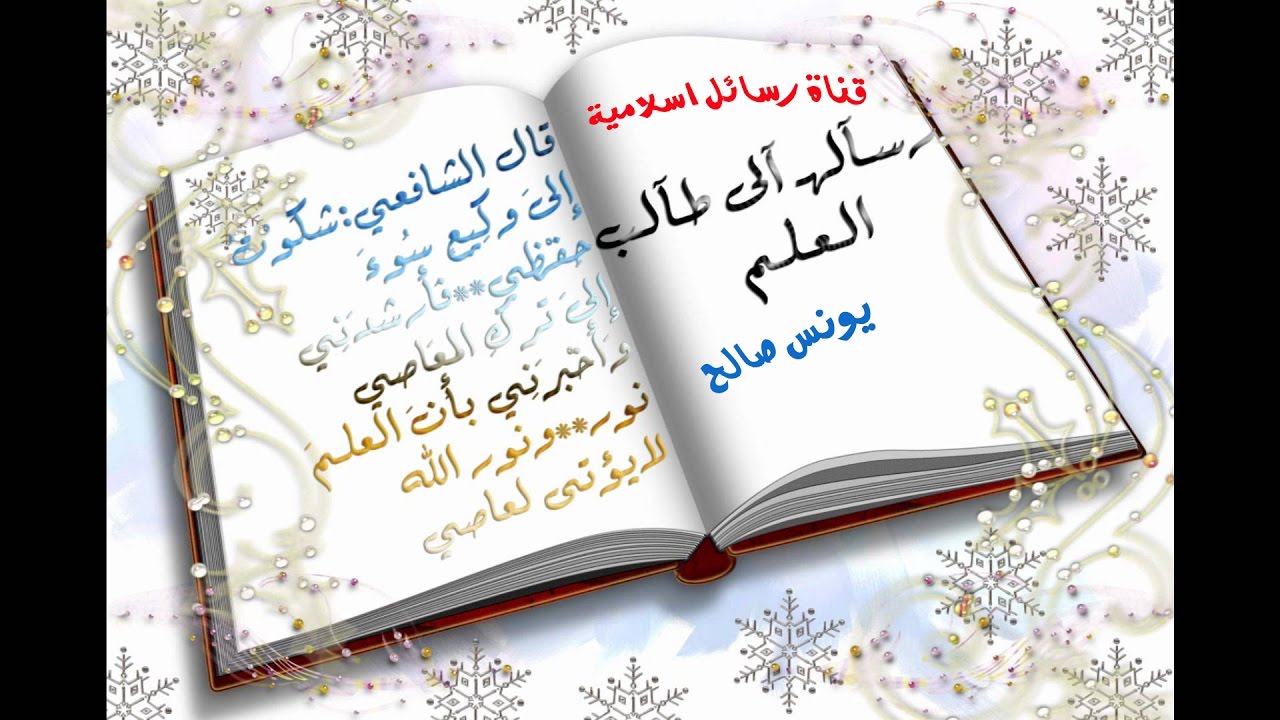 قناة رسائل اسلامية
رسآلہ آلى طآلب
العلم
يونس صالح
قال الشافعي:شكوتُ
إلىَ وكِيعِ سُوءَ
حفظي**فأرشدَنِي
إلىَ تركِ المعَاصي
وَأَخْبرَنِي بأنَ العلمَ
نور**ونور الله
لايؤتى لعاصي